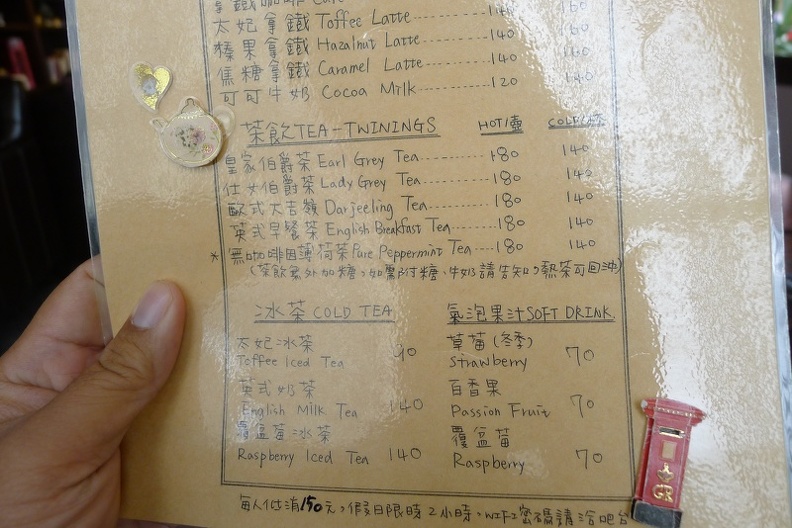 拿鐵咖啡 Cafe
太妃拿鐵 Toffee Latte 140 160
榛果拿鐵 Hazalnut Latte 140 160
焦糖拿鐵 Caramel Latte 140 160
可可牛奶 Cocoa Milk 120 140
茶飲TEA-TWININGS HOT/壺 COLD/杯
皇家伯爵茶 Earl Grey Tea 180 140
仕女伯爵茶 Lady Grey Tea 180 140
歐式大吉嶺 Darjeeling Tea 180 140
英式早餐茶 English Breakfast Tea 180 140
*無咖啡因薄荷茶 Pure Peppermint Tea 180 140
(茶飲無外加糖，如需附糖、牛奶請告知，熱茶可回沖)
冰茶 COLD TEA
太妃冰茶
Toffee Iced Tea 90
英式奶茶
English Milk Tea 140
覆盆莓冰茶
Raspberry Iced Tea 140
氣泡果汁 SOFT DRINK.
草莓(冬季)
Strawberry 70
百香果
Passion Fruit 70
覆盆莓
Raspberry 70
每人低消150元，假日限時2小時，WIFI密碼請洽吧台
GR